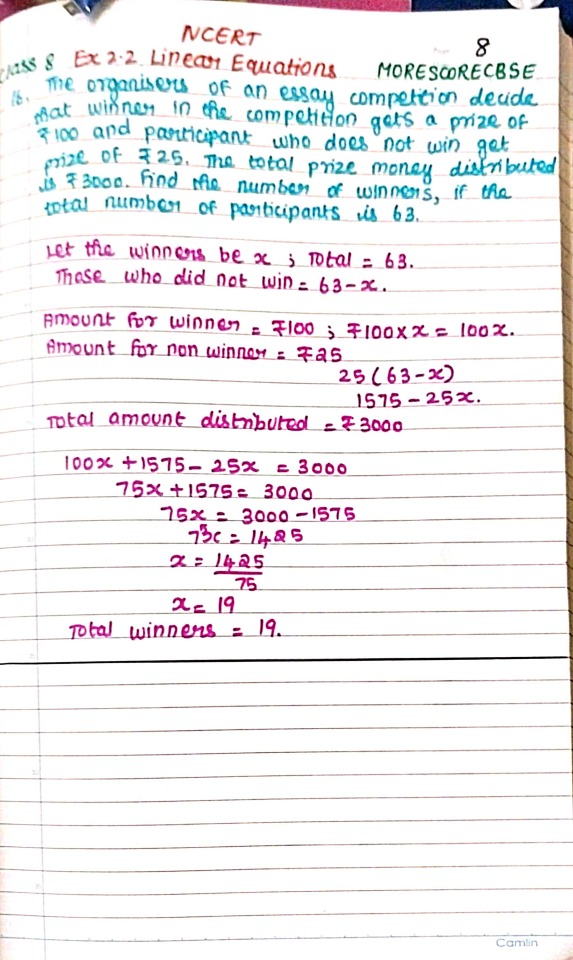 NCERT
8
Class 8 Ex 2.2 Linear Equations MORESCORECBSE
16. The organisers of an essay competition decide
that winner in the competition gets a prize of
₹100 and participant who does not win get
prize of ₹25. The total prize money distributed
is ₹3000. Find the number of winners, if the
total number of participants is 63.
Let the winners be x ; Total = 63.
Those who did not win = 63-x.
Amount for winner = ₹100 ; ₹100×x = 100x.
Amount for non winner = ₹25
25(63-x)
1575-25x.
Total amount distributed = ₹3000
100x+1575-25x = 3000
75x+1575= 3000
75x = 3000-1575
75x = 1425
x = 1425
75
x= 19
Total winners = 19.
Camlin